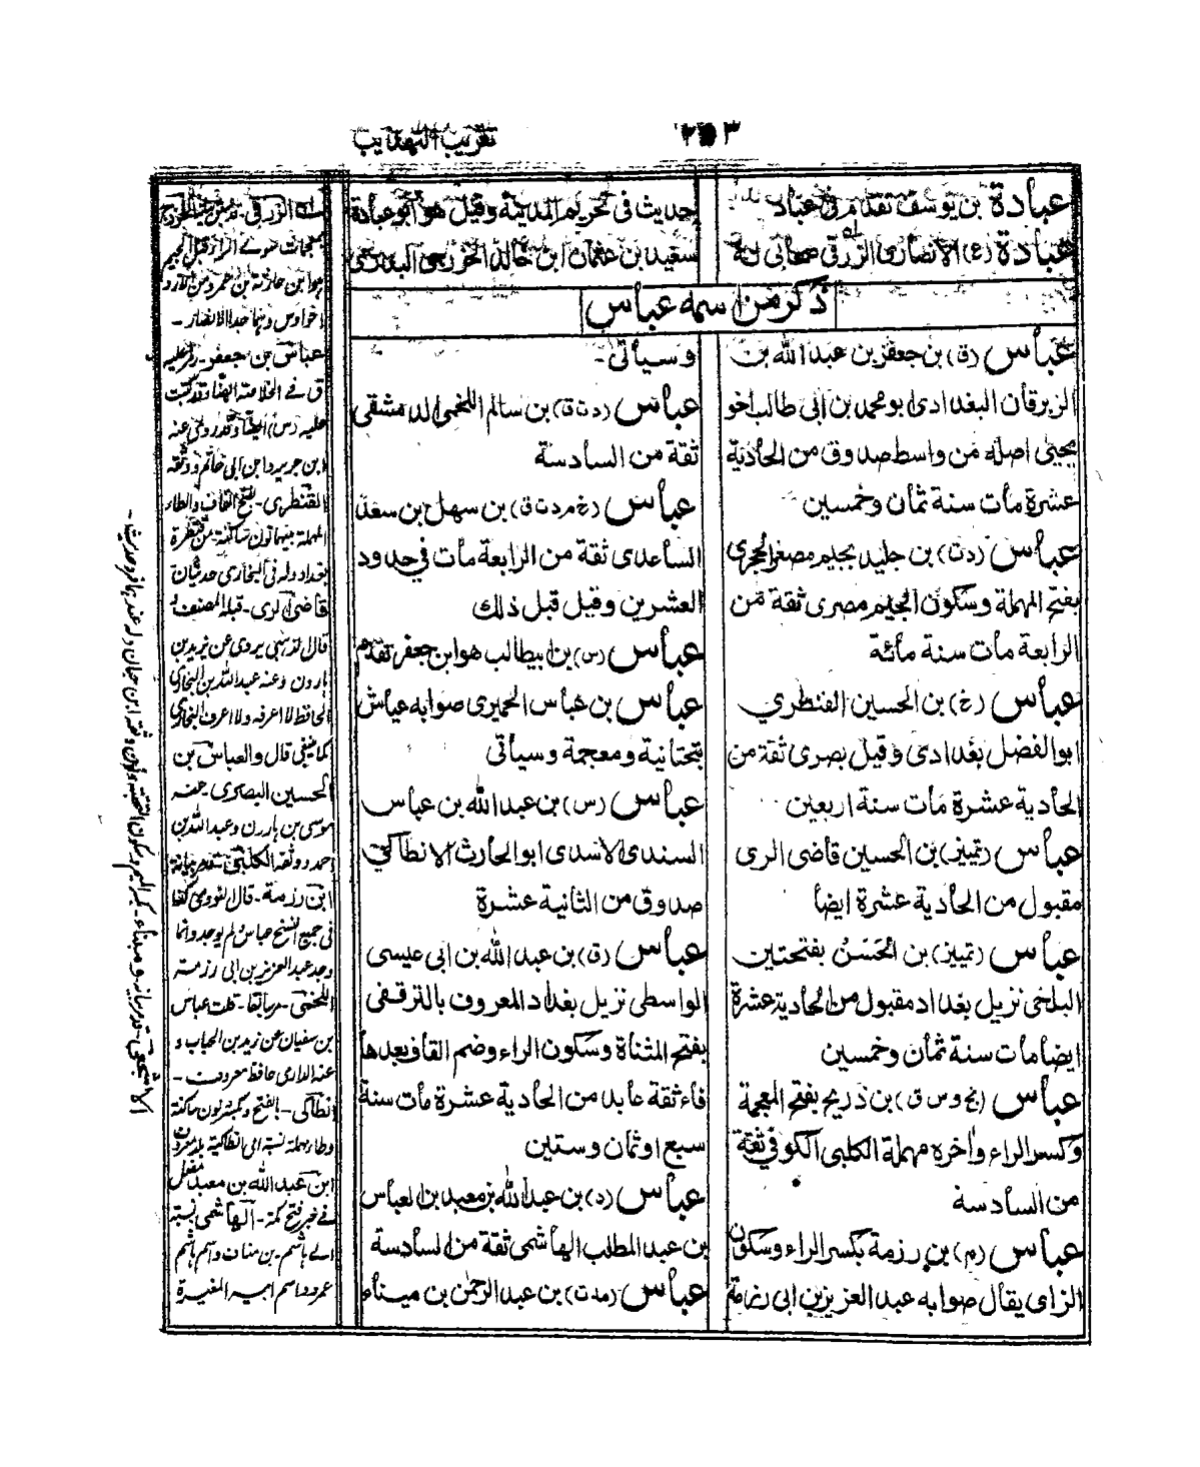 ٢٥٣
تقريب التهذيب
عبادة بن يوسف تقدم فى عباد
عبادة (ع) الانصارى الزرقى صحابى له
حديث فى تحريم المدينة وقيل هو ابو عبادة
سعيد بن عثمان ابن خالد الخزرجى البدرى
ذكر من اسمه عباس
عباس (ق) بن جعفر بن عبد الله بن
الزبرقان البغدادى ابو محمد بن ابى طالب اخو
يحيى اصله من واسط صدوق من الحادية
عشرة مات سنة ثمان وخمسين
عباس (دت) بن جليد بجيم مصغرا لحجرى
بفتح المهملة وسكون الجيم مصرى ثقة من
الرابعة مات سنة مائة
عباس (خ) بن الحسين القنطري
ابو الفضل بغدادى وقيل بصرى ثقة من
الحادية عشرة مات سنة اربعين
عباس (تمييز) بن الحسين قاضى الرى
مقبول من الحادية عشرة ايضا
عباس (تمييز) بن الحسن بفتحتين
البلخى نزيل بغداد مقبول من الحادية عشرة
ايضا مات سنة ثمان وخمسين
عباس (بخ وس ق) بن ذريح بفتح المعجمة
وكسر الراء واخره مهملة الكلبى الكوفي ثقة
من السادسة
عباس (م) بن رزمة بكسر الراء وسكون
الزاى يقال صوابه عبد العزيز بن ابى رزمة
وسيأتى -
عباس (دت ق) بن سالم اللخمى الدمشقى
ثقة من السادسة
عباس (خ م دت ق) بن سهل بن سعد
الساعدى ثقة من الرابعة مات في حدود
العشرين وقيل قبل ذلك
عباس (س) بن ابيطالب هو ابن جعفر تقدم
عباس بن عباس الحميرى صوابه عياش
بتحتانية ومعجمة وسيأتى
عباس (س) بن عبد الله بن عباس
السندى الاسدى ابو الحارث الانطاكي
صدوق من الثانية عشرة
عباس (ق) بن عبد الله بن ابى عيسى
الواسطى نزيل بغداد المعروف بالترقفى
بفتح المثناة وسكون الراء وضم القاف بعدها
فاء ثقة عابد من الحادية عشرة مات سنة
سبع او ثمان وستين
عباس (د) بن عبد الله بن معبد بن العباس
بن عبد المطلب الهاشمى ثقة من السادسة
عباس (مدت) بن عبد الرحمن بن ميناء
هو ابن حارثة بن عمرو من الازد
عباس بن جعفر - رقم عليه
ق فى الخلاصة ايضا وقد كتبت
عليه (س) ايضا وقد روى عنه
ابن جرير وابن ابى حاتم ووثقه
القنطرى - بفتح القاف والطاء
المهملة بينهما نون ساكنة من قنطرة
بغداد وله فى البخارى حديثان
قاضى الرى - قبله المصنف و
قال الذهبى يروى عن يزيد بن
هارون وعنه عبد الله بن البخارى
الحافظ لا اعرفه ولا اعرف البخارى
قال والعباس بن
الحسين البصرى عنه
موسى بن هارون وعبد الله بن
احمد ووثقه
ابن رزمة - قال النووى كذا
فى جميع النسخ عباس ولم يوجد وانما
وجد عبد العزيز بن ابى رزمة
قلت عباس
بن سفيان عن زيد بن الحباب و
عنه الدارى حافظ معروف -
انطاكى - بالفتح وكسر نون ساكنة
وطاء مهملة نسبة الى انطاكية
ابن عبد الله بن معبد
فى خبر فتح مكة - الهاشمى نسبة
الى هاشم بن مناف واسم هاشم
عمرو واسم ابيه المغيرة